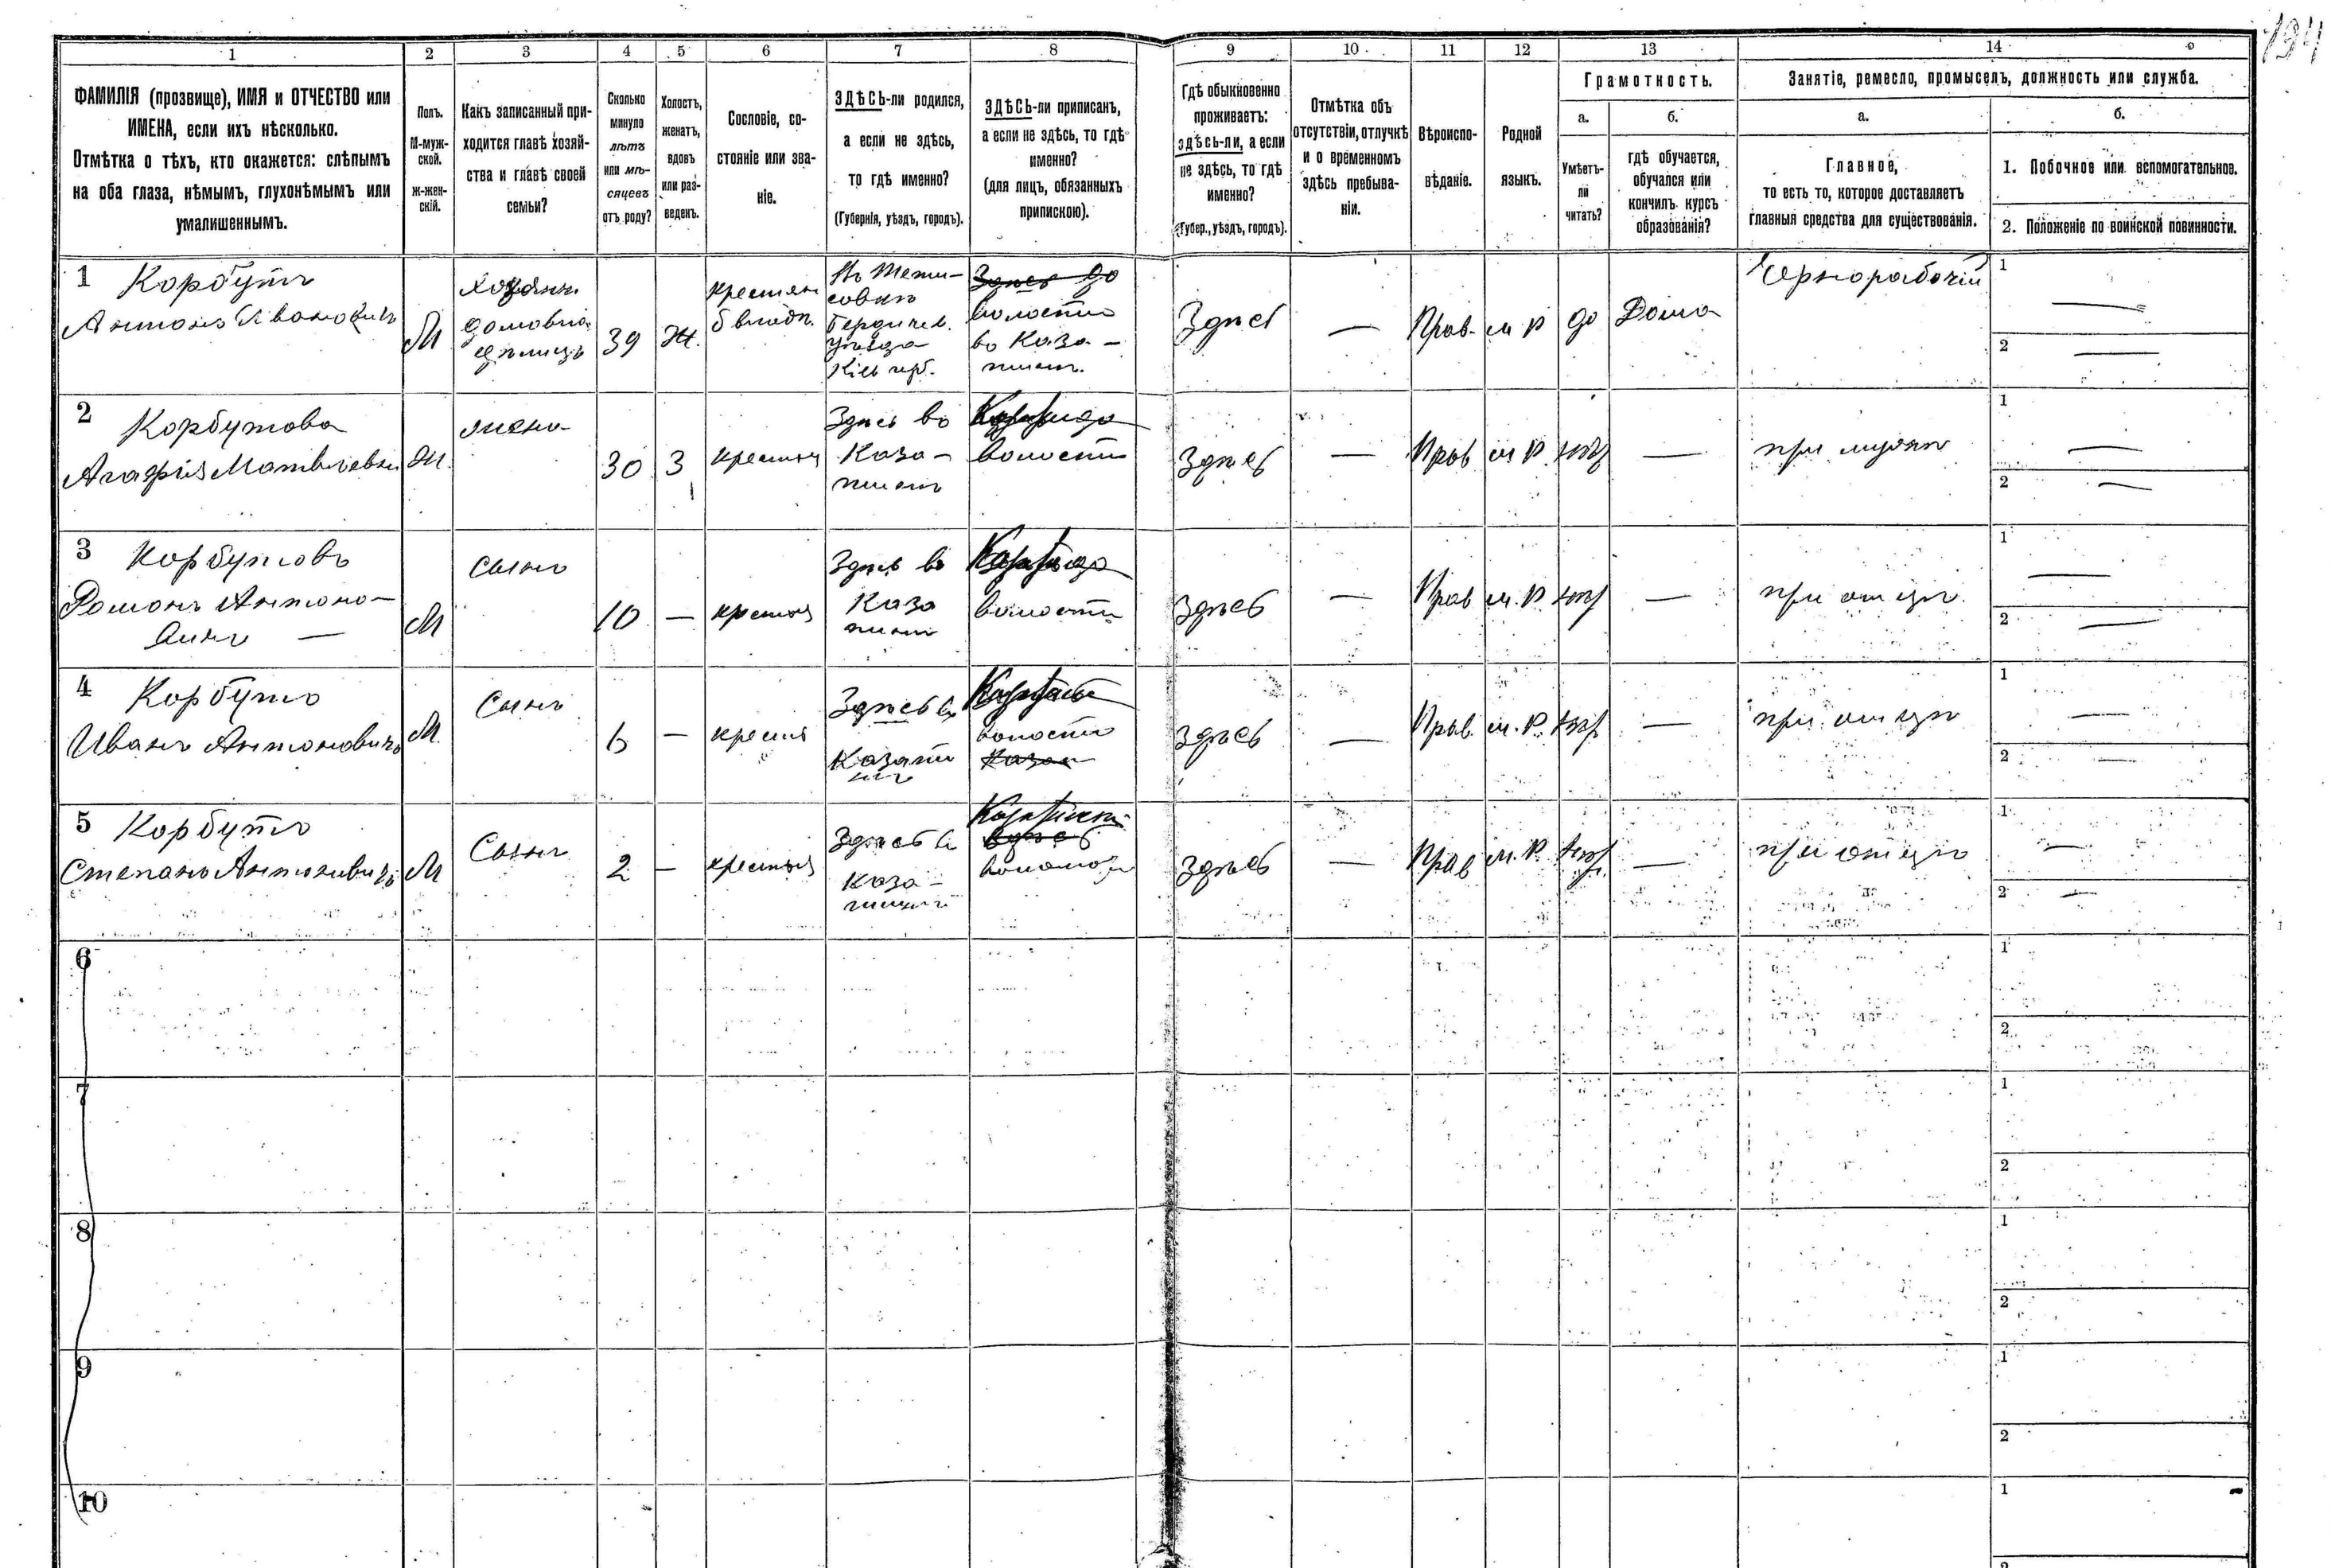 194
1 2 3 4 5 6 7 8 9 10 11 12 13 14
ФАМИЛІЯ (прозвище), ИМЯ и ОТЧЕСТВО или
ИМЕНА, если ихъ нѣсколько.
Отмѣтка о тѣхъ, кто окажется: слѣпымъ
на оба глаза, нѣмымъ, глухонѣмымъ или
умалишеннымъ.
Полъ.
М-муж-
ской.
ж-жен-
скій.
Какъ записанный при-
ходится главѣ хозяй-
ства и главѣ своей
семьи?
Сколько
минуло
лѣтъ
или мѣ-
сяцевъ
отъ роду?
Холостъ,
женатъ,
вдовъ
или раз-
веденъ.
Сословіе, со-
стояніе или зва-
ніе.
ЗДѢСЬ-ли родился,
а если не здѣсь,
то гдѣ именно?
(Губернія, уѣздъ, городъ).
ЗДѢСЬ-ли приписанъ,
а если не здѣсь, то гдѣ
именно?
(для лицъ, обязанныхъ
припискою).
Гдѣ обыкновенно
проживаетъ:
здѣсь-ли, а если
не здѣсь, то гдѣ
именно?
(Губер., уѣздъ, городъ).
Отмѣтка объ
отсутствіи, отлучкѣ
и о временномъ
здѣсь пребыва-
ніи.
Вѣроиспо-
вѣданіе.
Родной
языкъ.
Грамотность.
а.
Умѣетъ-
ли
читать?
б.
гдѣ обучается,
обучался или
кончилъ курсъ
образованія?
Занятіе, ремесло, промыселъ, должность или служба.
а.
Главное,
то есть то, которое доставляетъ
главныя средства для существованія.
б.
1. Побочное или вспомогательное.
2. Положеніе по воинской повинности.
1 Корбутъ
Антонъ Ивановичъ
М
Хозяинъ
домовла
дѣлецъ
39
Ж.
крестьян
б владѣ.
Бердичев.
уѣзда
Кіев губ.
Здѣсь
волости
въ Каза-
тинѣ.
Здѣсь
—
Прав.
м р
да
Дома
Чернорабочій
1 —
2 —
2 Корбутова
Агафія Матвѣевна
Ж.
жена
30
З
крестья
Здѣсь въ
Каза-
тинѣ
волости
Здѣсь
—
Прав
м Р.
нѣт
—
при мужѣ
1 —
2 —
3 Корбутовъ
Романъ Антоно-
вичъ —
М
сынъ
10
—
крестья
Здѣсь въ
Каза
тинѣ
волости
Здѣсь
—
Прав
м. Р.
нѣт
—
при отцѣ
1 —
2 —
4 Корбутъ
Иванъ Антоновичъ
М
Сынъ
6
—
крестья
Здѣсь въ
Казати
нѣ
волости
Казат
Здѣсь
—
Прав.
м. Р.
нѣт
—
при отцѣ
1 —
2 —
5 Корбутъ
Степанъ Антоновичъ
М
Сынъ
2
—
крестья
Здѣсь в
Каза-
тинѣ
Здѣсь
волости
Здѣсь
—
Прав
м. Р.
нѣт.
—
при отцѣ
1 —
2 —
6
1
2
7
1
2
8
1
2
9
1
2
10
1
2